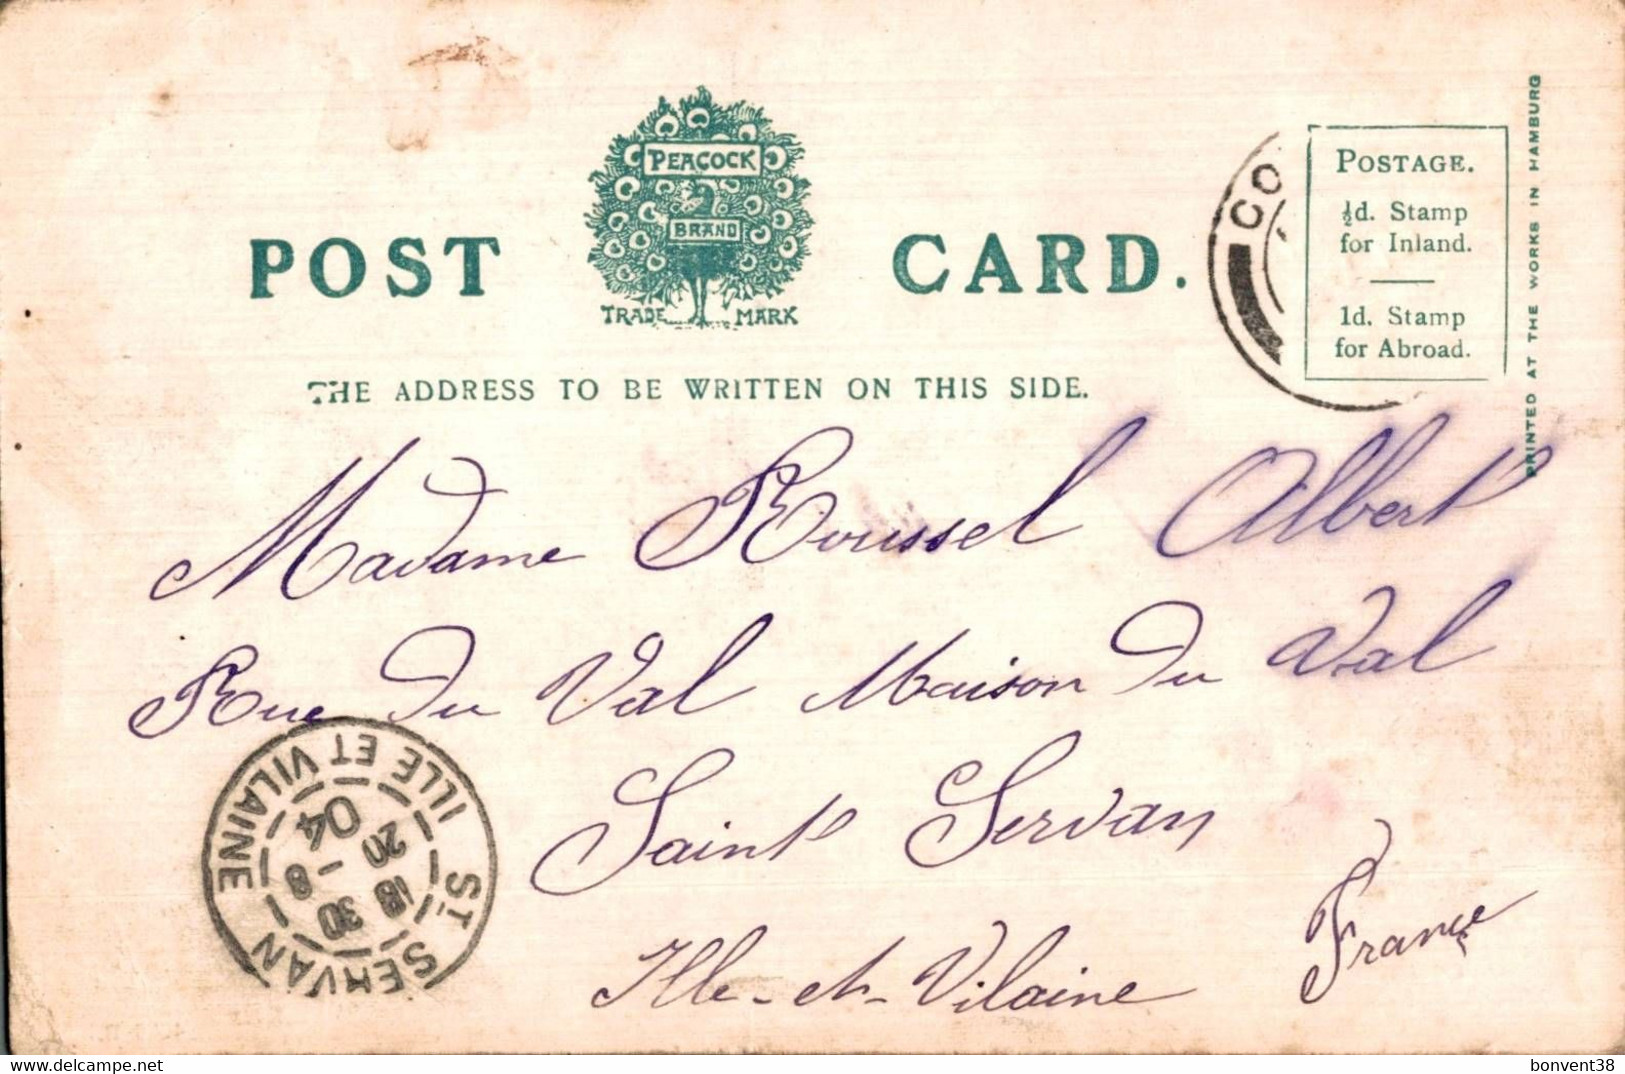 PEACOCK
BRAND
TRADE MARK
POST CARD.
THE ADDRESS TO BE WRITTEN ON THIS SIDE.
CO
POSTAGE.
½d. Stamp
for Inland.
1d. Stamp
for Abroad.
PRINTED AT THE WORKS IN HAMBURG
Madame Roussel Albert
Rue du Val Maison du Val
Saint Servan
Ille-et-Vilaine France
ST SERVAN
ILLE ET VILAINE
18 30
20 -8
04
delcampe.net
bonvent38